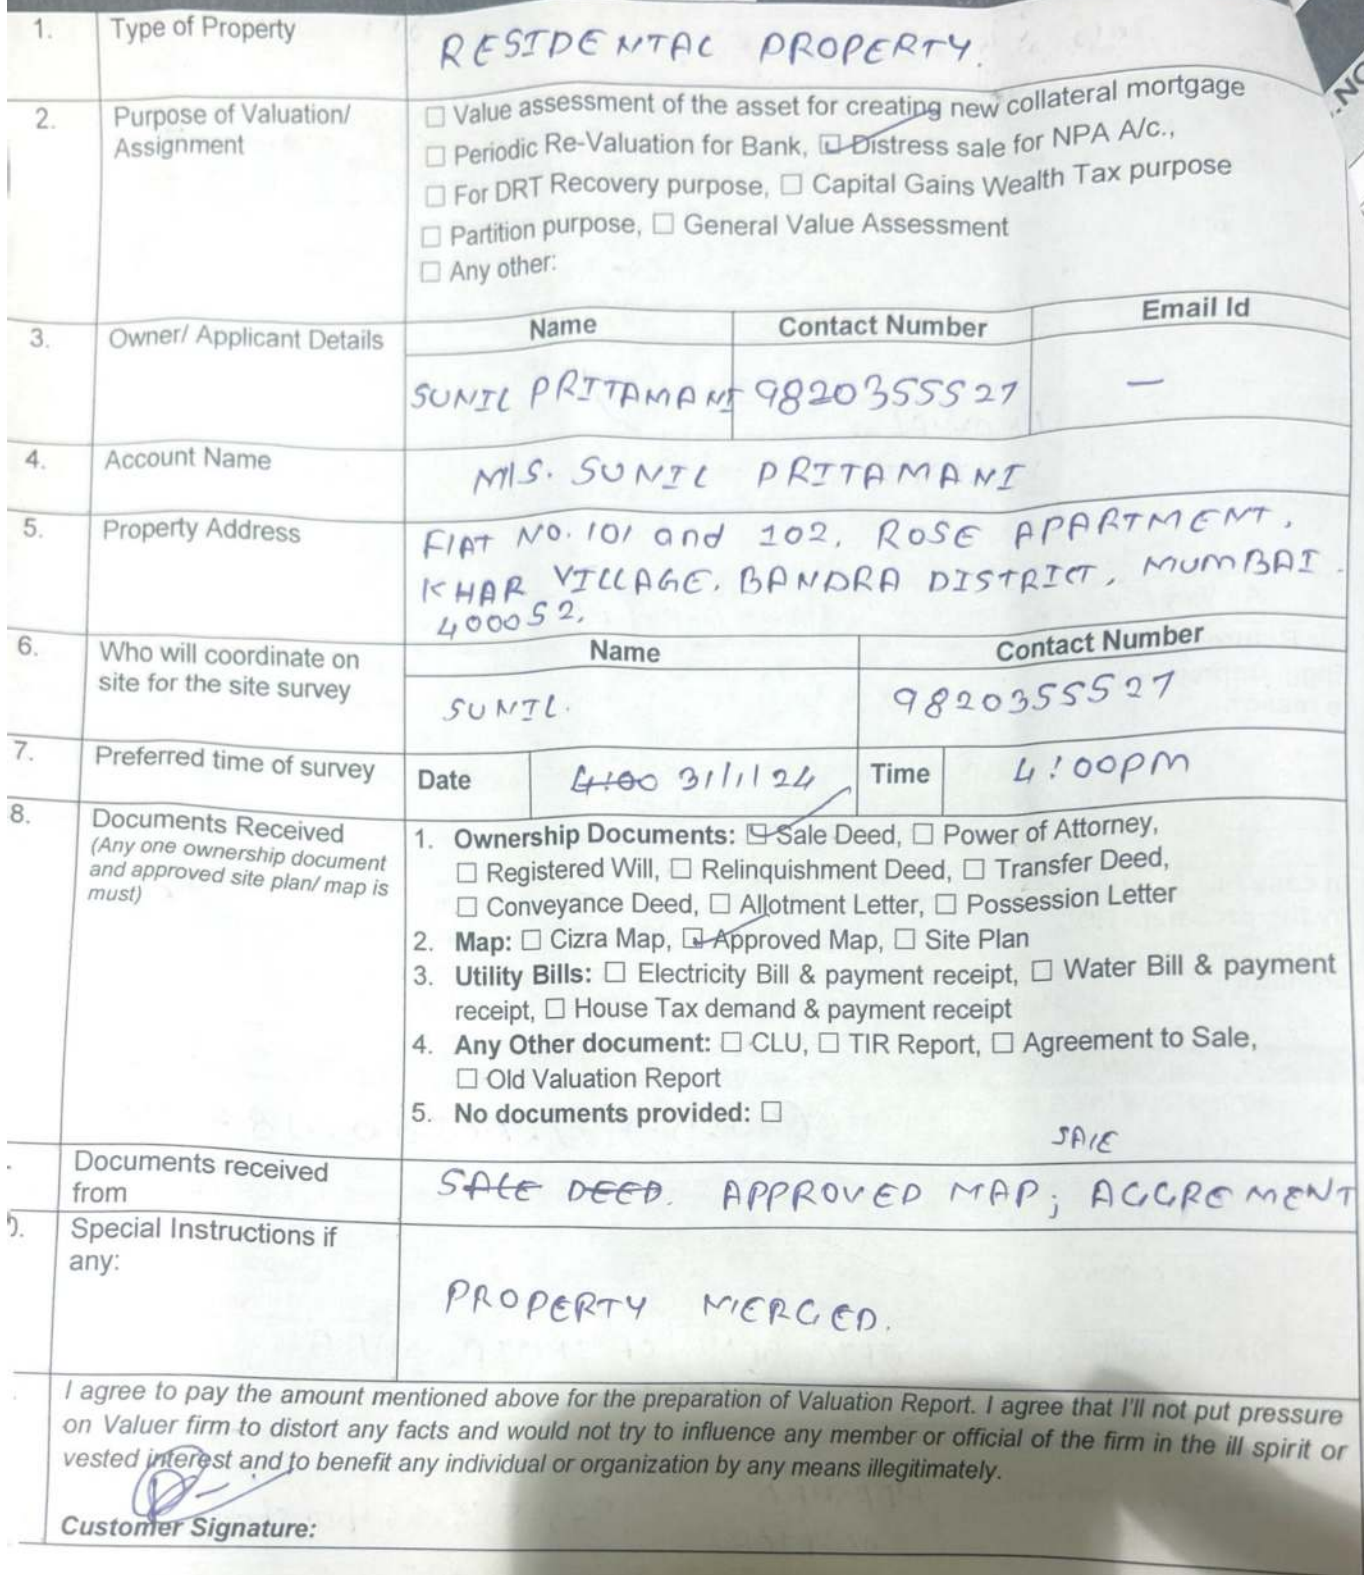 1. Type of Property RESIDENTAL PROPERTY.
2. Purpose of Valuation/ Assignment
☐ Value assessment of the asset for creating new collateral mortgage
☐ Periodic Re-Valuation for Bank, ☑ Distress sale for NPA A/c.,
☐ For DRT Recovery purpose, ☐ Capital Gains Wealth Tax purpose
☐ Partition purpose, ☐ General Value Assessment
☐ Any other:
3. Owner/ Applicant Details Name Contact Number Email Id
SUNIL PRITAMANI 9820355527 —
4. Account Name M/S. SUNIL PRITAMANI
5. Property Address FlAT NO. 101 and 102, ROSE APARTMENT,
KHAR VILLAGE, BANDRA DISTRICT, MUMBAI.
400052.
6. Who will coordinate on Name Contact Number
site for the site survey SUNIL. 9820355527
7. Preferred time of survey Date 4:00 31/1/24 Time 4:00PM
8. Documents Received
(Any one ownership document
and approved site plan/ map is
must)
1. Ownership Documents: ☑ Sale Deed, ☐ Power of Attorney,
☐ Registered Will, ☐ Relinquishment Deed, ☐ Transfer Deed,
☐ Conveyance Deed, ☐ Allotment Letter, ☐ Possession Letter
2. Map: ☐ Cizra Map, ☑ Approved Map, ☐ Site Plan
3. Utility Bills: ☐ Electricity Bill & payment receipt, ☐ Water Bill & payment
receipt, ☐ House Tax demand & payment receipt
4. Any Other document: ☐ CLU, ☐ TIR Report, ☐ Agreement to Sale,
☐ Old Valuation Report
5. No documents provided: ☐
SAlE
Documents received
from
SALE DEED. APPROVED MAP; AGGREMENT
Special Instructions if
any:
PROPERTY MERGED.
I agree to pay the amount mentioned above for the preparation of Valuation Report. I agree that I'll not put pressure
on Valuer firm to distort any facts and would not try to influence any member or official of the firm in the ill spirit or
vested interest and to benefit any individual or organization by any means illegitimately.
Customer Signature: